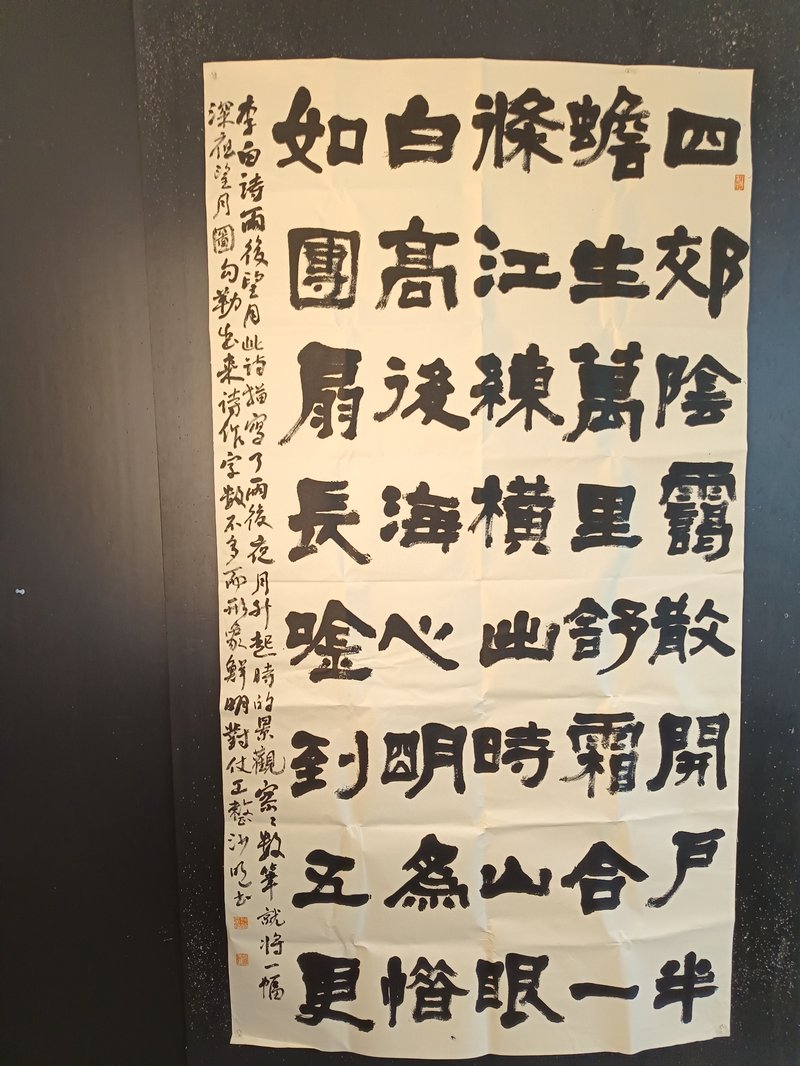 四郊陰靄散開戶半
蟾生萬里舒霜合一
條江練橫出時山眼
白高後海心明為惜
如團扇長唫到五更
李白詩雨後望月此詩描寫了雨後夜月升起時的景觀寥〻數筆就將一幅
深夜望月圖勾勒出來詩作字數不多而形象鮮明對仗工整